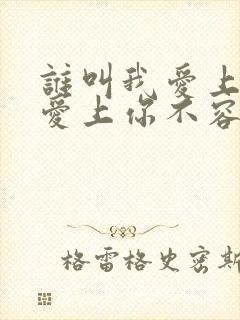 誰叫我愛上
愛上你不容
格雷格史密斯